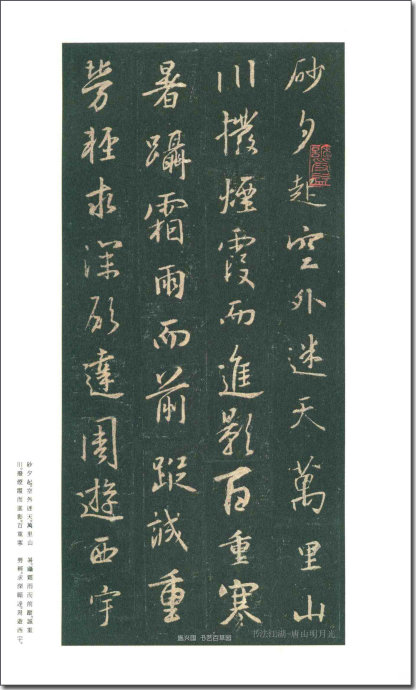 砂夕起空外迷天萬里山
川撥煙霞而進影百重寒
暑躡霜雨而前蹤誠重
勞輕求深願達周遊西宇
砂夕起,空外迷天,萬里山
川,撥煙霞而進影;百重寒
暑,躡霜雨而前蹤;誠重
勞輕,求深願達,周遊西宇,
书艺百草园
书法江湖-唐山明月光